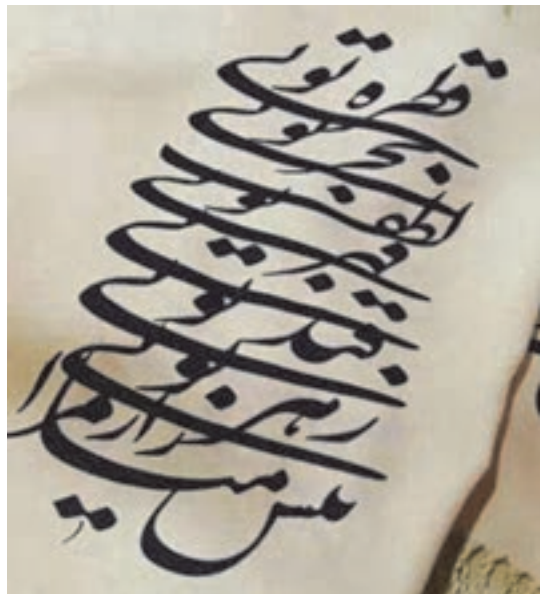 قطره تویی
بحر تویی
لطف تویی
قهر تویی
قند تویی
زهر تویی
بیش میازار مرا